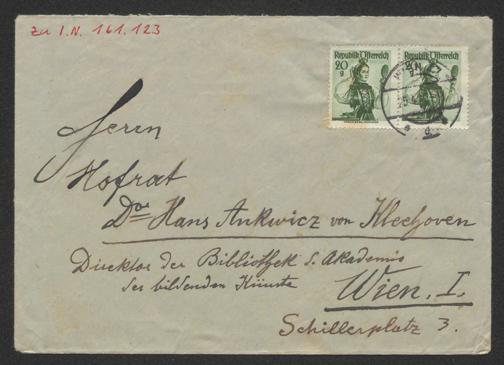 Zu I.N. 161.123
Republik Österreich
20
g
Republik Österreich
WIEN
Herrn
Hofrat
Dor Hans Ankwicz von Kleehoven
Direktor der Bibliothek d. Akademie
der bildenden Künste
Wien. I.
Schillerplatz 3.